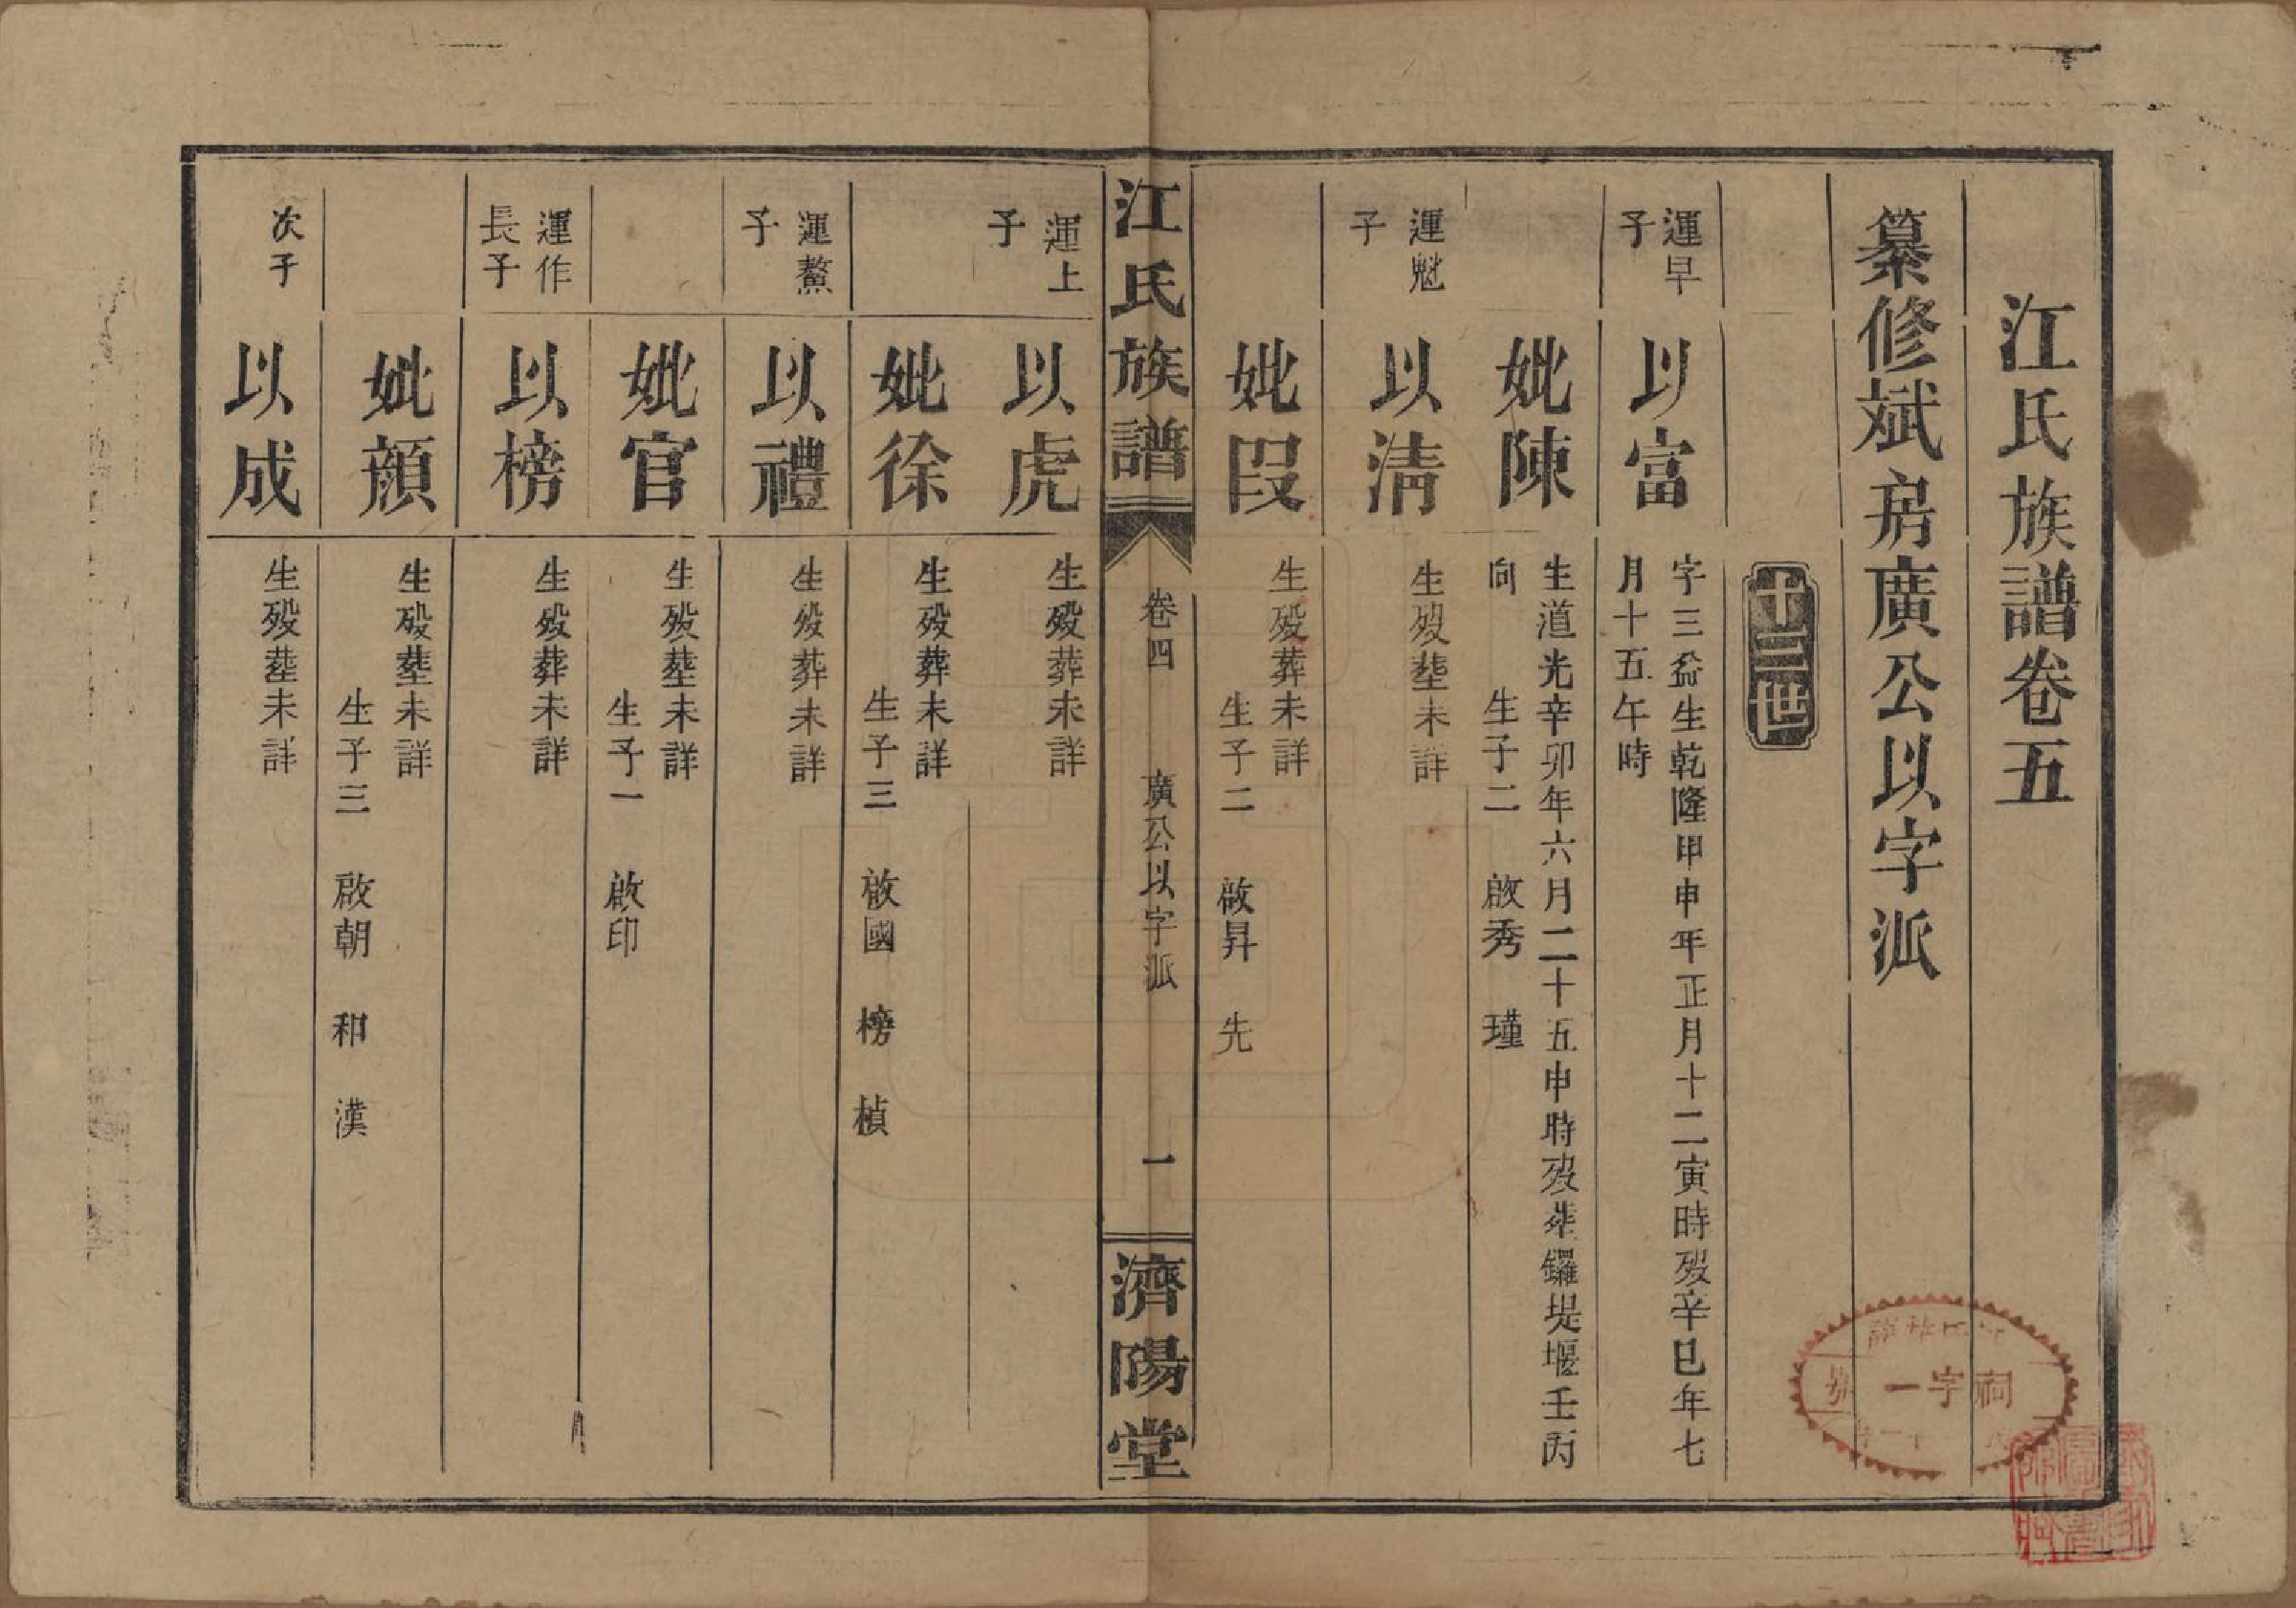 江氏族譜卷五
纂修斌房廣公以字派
十三世
運早
子
以富
字三益生乾隆甲申年正月十二寅時歿辛巳年七
月十五午時
妣陳
生道光辛卯年六月二十五申時歿葬鑼堤堰壬丙
向　生子二　啟秀　瑾
運魁
子
以清
生歿塟未詳
妣段
生歿葬未詳
生子二　啟昇　先
江氏族譜
卷四　廣公以字派　一
濟陽堂
運上
子
以虎
生歿葬未詳
妣徐
生歿葬未詳
生子三　啟國　榜　楨
運鰲
子
以禮
生歿葬未詳
妣官
生歿塟未詳
生子一　啟印
運作
長子
以榜
生歿葬未詳
妣顏
生歿塟未詳
生子三　啟朝　和　漢
次子
以成
生歿塟未詳
祠字一號